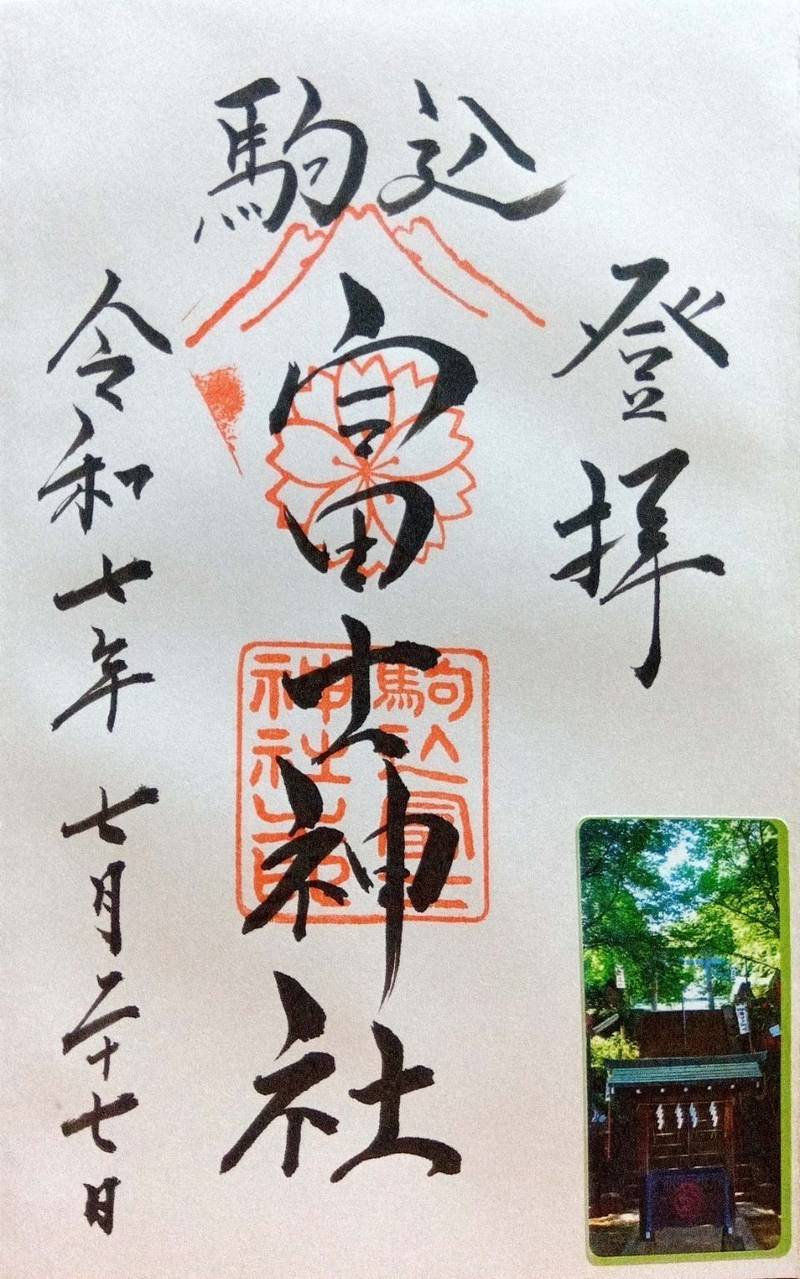 登拝
駒込
富士神社
令和七年 七月二十七日
駒込富士
神社之印